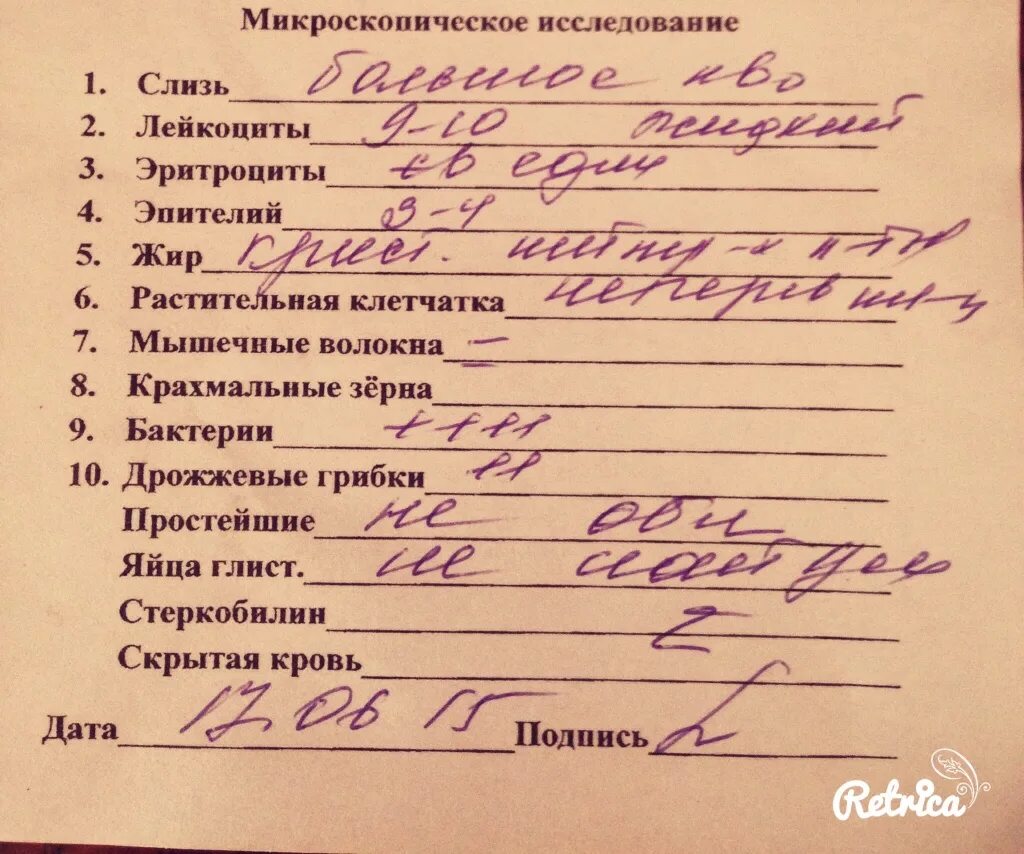 Микроскопическое исследование
1. Слизь большое кво
2. Лейкоциты 9-10 жидкий
3. Эритроциты ед
4. Эпителий 3-4
5. Жир
6. Растительная клетчатка неперев
7. Мышечные волокна –
8. Крахмальные зёрна
9. Бактерии ++++
10. Дрожжевые грибки ++
Простейшие не обн
Яйца глист. не
Стеркобилин
Скрытая кровь
Дата 17.06 15 Подпись
Retrica